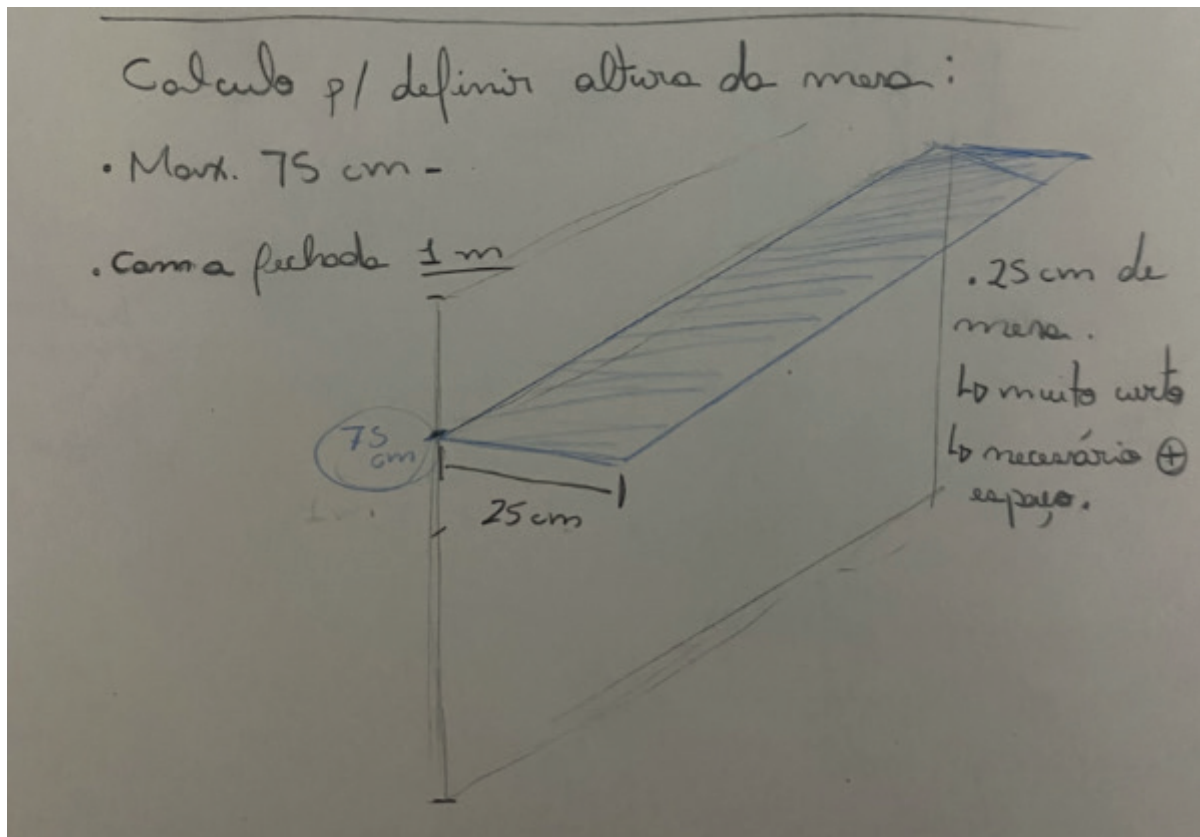 Calculo p/ definir altura da mesa:
• Max. 75 cm -
• Cama fechada 1 m
75
cm
25 cm
• 25 cm de
mesa.
↳ muito curto
↳ necessário ⊕
espaço.